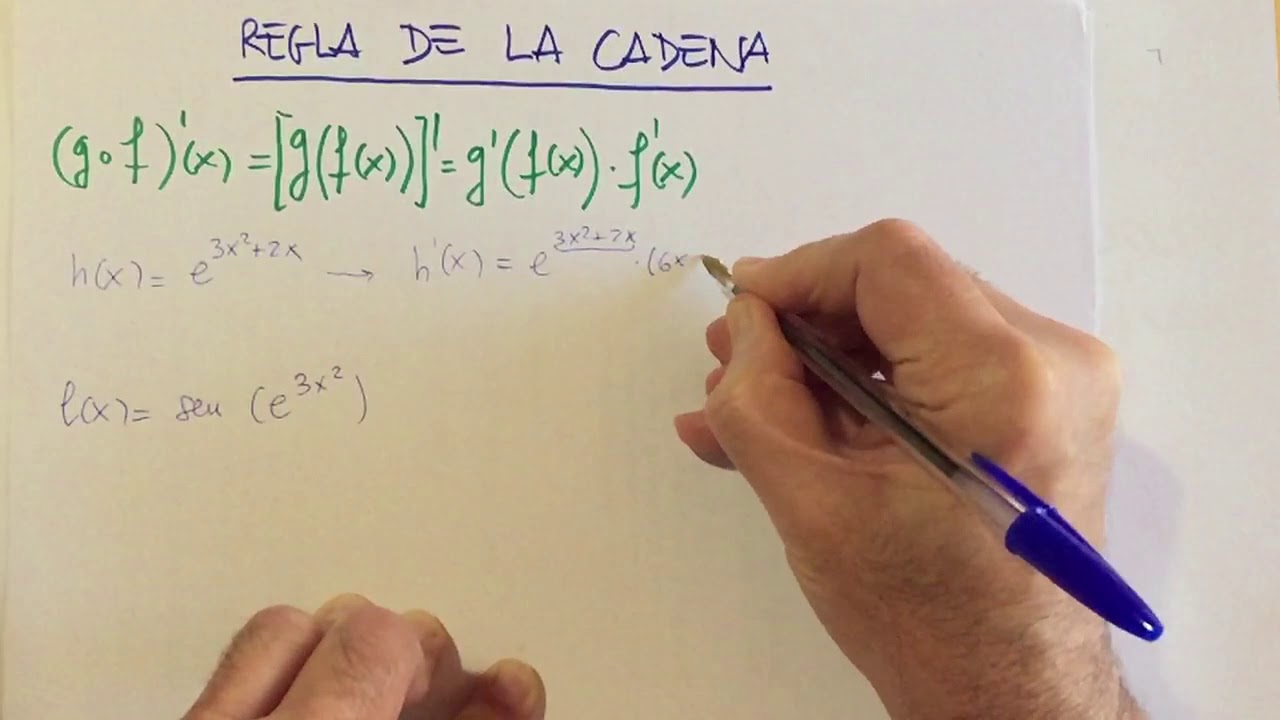 REGLA DE LA CADENA
(g∘f)'(x) = [g(f(x))]' = g'(f(x)) · f'(x)
h(x) = e^{3x²+2x} → h'(x) = e^{3x²+2x} · (6x
l(x) = sen (e^{3x²})